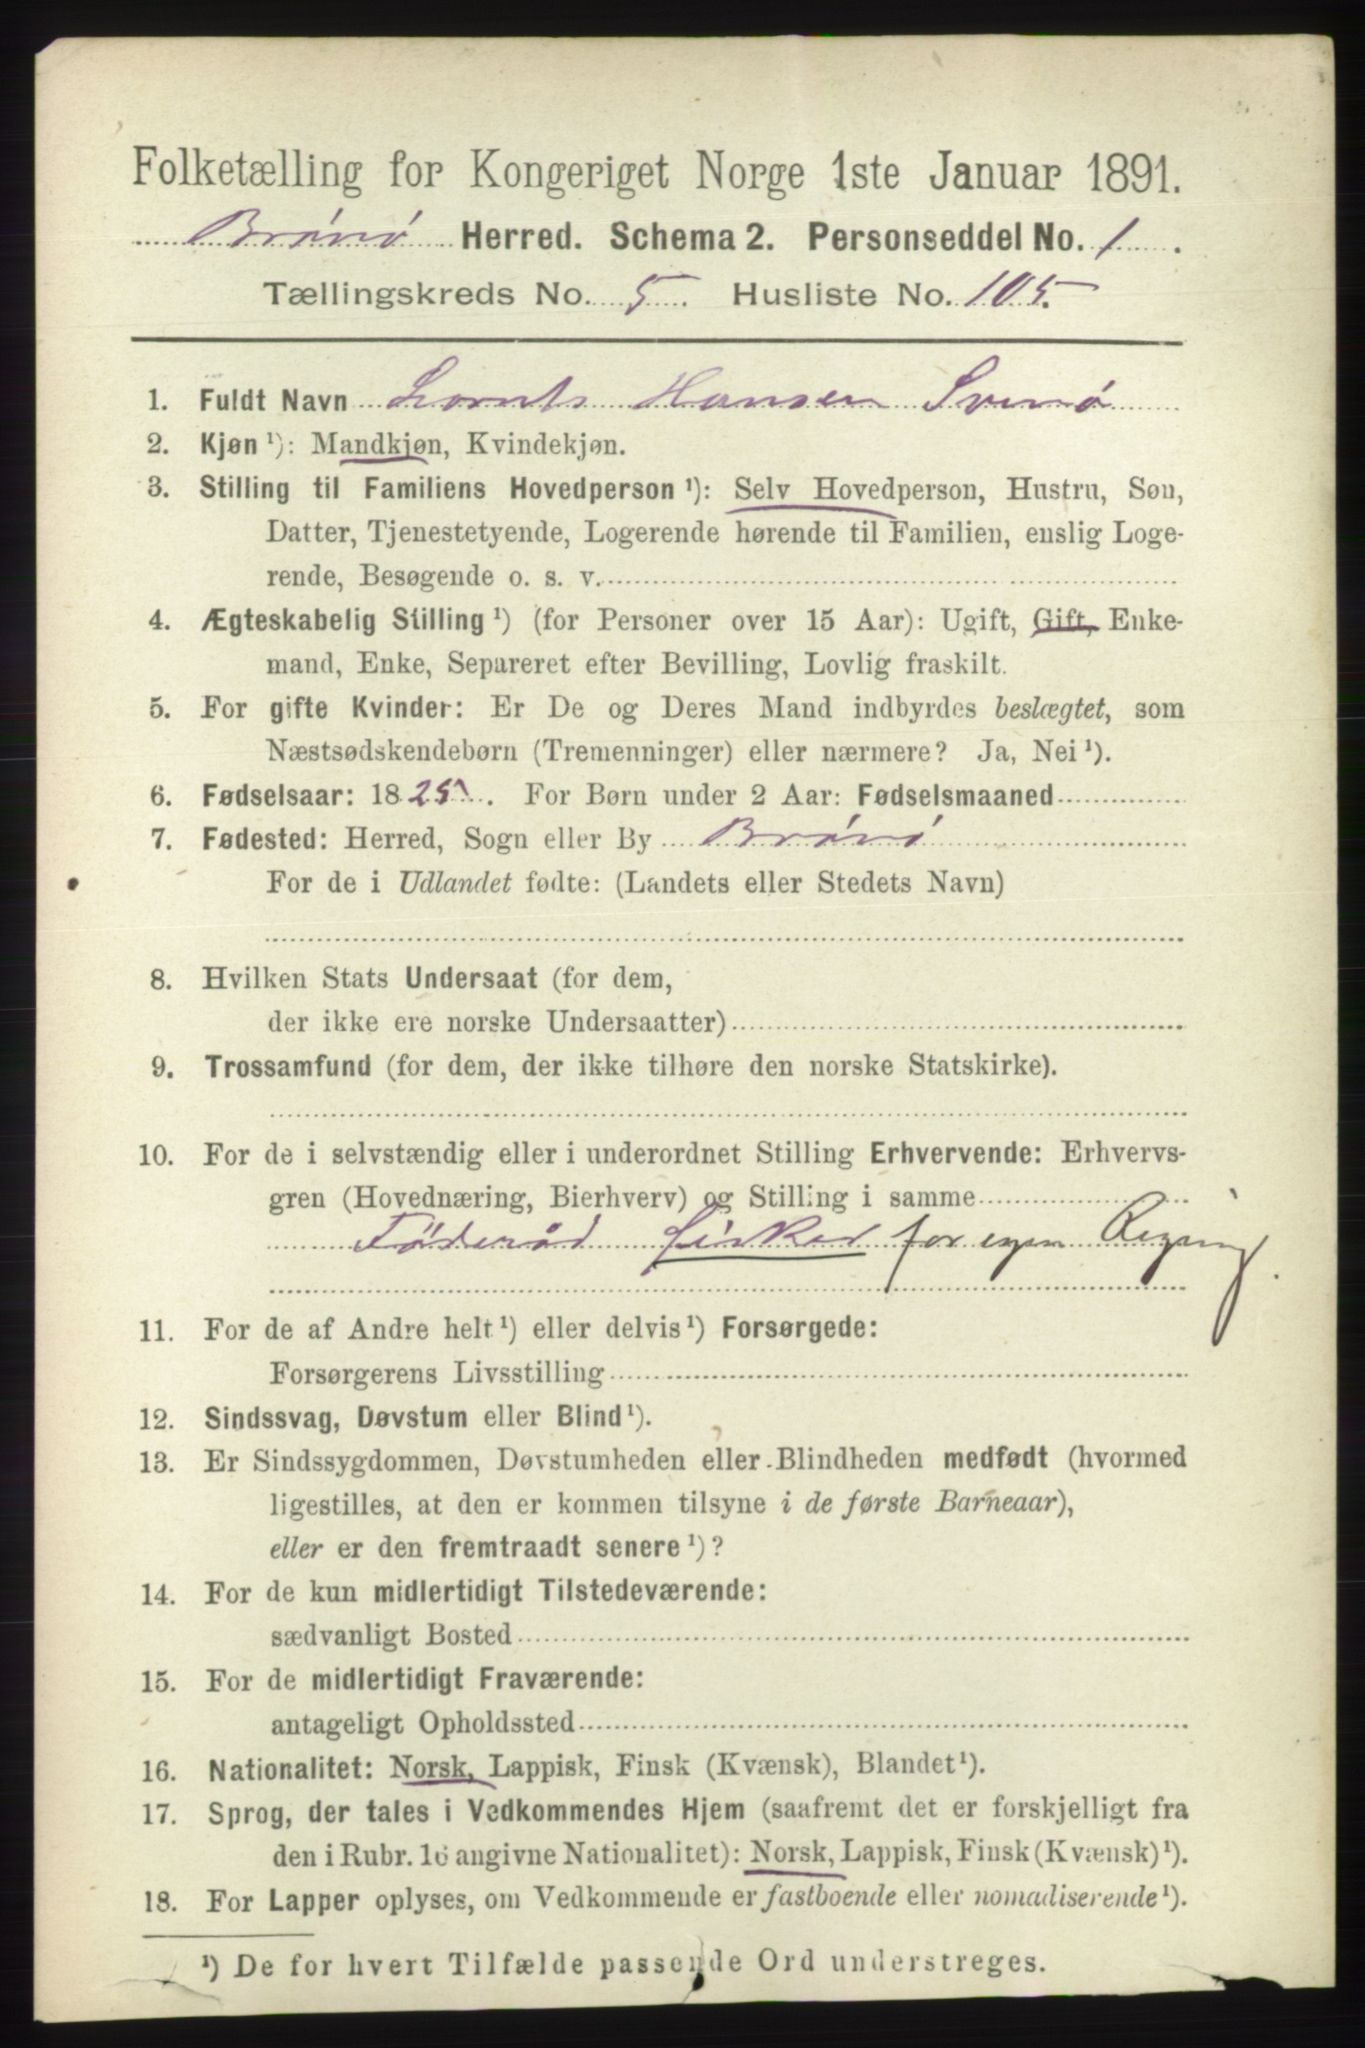 Folketælling for Kongeriget Norge 1ste Januar 1891.
Brønø Herred. Schema 2. Personseddel No. 1.
Tællingskreds No. 5. Husliste No. 105.
1. Fuldt Navn Lornts Hansen Svinø
2. Kjøn ¹): Mandkjøn, Kvindekjøn.
3. Stilling til Familiens Hovedperson ¹): Selv Hovedperson, Hustru, Søn,
Datter, Tjenestetyende, Logerende hørende til Familien, enslig Loge-
rende, Besøgende o. s. v.
4. Ægteskabelig Stilling ¹) (for Personer over 15 Aar): Ugift, Gift, Enke-
mand, Enke, Separeret efter Bevilling, Lovlig fraskilt.
5. For gifte Kvinder: Er De og Deres Mand indbyrdes beslægtet, som
Næstsødskendebørn (Tremenninger) eller nærmere? Ja, Nei ¹).
6. Fødselsaar: 1825. For Børn under 2 Aar: Fødselsmaaned
7. Fødested: Herred, Sogn eller By Brønø
For de i Udlandet fødte: (Landets eller Stedets Navn)
8. Hvilken Stats Undersaat (for dem,
der ikke ere norske Undersaatter)
9. Trossamfund (for dem, der ikke tilhøre den norske Statskirke).
10. For de i selvstændig eller i underordnet Stilling Erhvervende: Erhvervs-
gren (Hovednæring, Bierhverv) og Stilling i samme
Föderåd fisker for egen Regning.
11. For de af Andre helt ¹) eller delvis ¹) Forsørgede:
Forsørgerens Livsstilling
12. Sindssvag, Døvstum eller Blind ¹).
13. Er Sindssygdommen, Døvstumheden eller Blindheden medfødt (hvormed
ligestilles, at den er kommen tilsyne i de første Barneaar),
eller er den fremtraadt senere ¹)?
14. For de kun midlertidigt Tilstedeværende:
sædvanligt Bosted
15. For de midlertidigt Fraværende:
antageligt Opholdssted
16. Nationalitet: Norsk, Lappisk, Finsk (Kvænsk), Blandet ¹).
17. Sprog, der tales i Vedkommendes Hjem (saafremt det er forskjelligt fra
den i Rubr. 16 angivne Nationalitet): Norsk, Lappisk, Finsk (Kvænsk) ¹).
18. For Lapper oplyses, om Vedkommende er fastboende eller nomadiserende ¹).
¹) De for hvert Tilfælde passende Ord understreges.